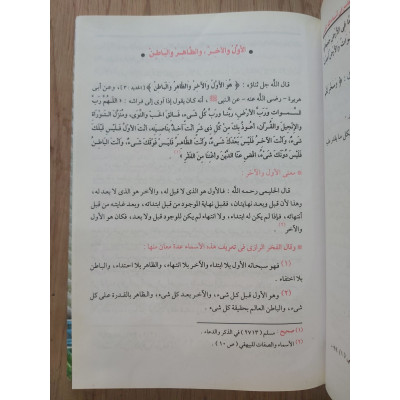 الأولُ والآخـرُ، والظَّاهـرُ والباطـنُ
قال اللَّه جل ثناؤه : ﴿ هُوَ الأَوَّلُ وَالآخِرُ وَالظَّاهِرُ وَالْبَاطِنُ ﴾ (الحديد : ٣)، وعن أبى
هريرة - رضى اللَّه عنه - عن النبى ﷺ، أنه كان يقول إذا أوى إلى فراشه : « اللهُمَّ رَبَّ
السَّـمَوَاتِ وَرَبَّ الأَرْضِ، رَبَّنَا وَرَبَّ كُلِّ شَىْءٍ، فَالِقَ الحَبِّ وَالنَّوَى، وَمُنْزِلَ التَّوْرَاةِ
وَالإِنْجِيلِ وَالْقُـرْآنِ، أَعُـوذُ بِكَ مِنْ كُلِّ ذِى شَرٍّ أَنْتَ آخِـذٌ بِنَاصِيَتِهِ، أَنْتَ الأَوَّلُ فَلَيْسَ قَبْلَكَ
شَىْءٌ، وَأَنْتَ الآخِـرُ فَلَيْسَ بَعْدَكَ شَىْءٌ، وَأَنْتَ الظَّاهِرُ فَلَيْسَ فَوْقَكَ شَىْءٌ، وَأَنْتَ البَاطِنُ
فَلَيْسَ دُونَكَ شَىْءٌ، اقْضِ عَنَّا الدَّيْنَ وَاغْنِنَا مِنَ الفَقْرِ »
* معنى الأول والآخر :
قال الحليمى رحمه اللَّه : فالأول هو الذى لا قبل له، والآخر هو الذى لا بعد له،
وهذا لأن قبل وبعد نهايتان، فقبل نهاية الموجود من قبل ابتدائه، وبعد غايته من قبل
انتهائه، فإذا لم يكن له ابتداء، ولا انتهاء لم يكن للموجود قبل ولا بعد، فهو الأول
والآخر (٢).
* وقال الفخر الرازى فى تعريف هذه الأسماء عدة معان منها :
(١) فهو سبحانه الأول بلا ابتداء والآخر بلا انتهاء، والظاهر بلا احتداء، والباطن
بلا اختفاء .
(٢) وهو الأول قبل كـل شىء، والآخـر بعد كل شىء، والظاهر بالقـدرة على كل
شىء، والباطن العالم بحقيقة كل شىء .
(١) صحيح : مسلم (٢٧١٣) فى الذكر والدعاء .
(٢) الأسماء والصفات للبيهقى (ص ١٠) .